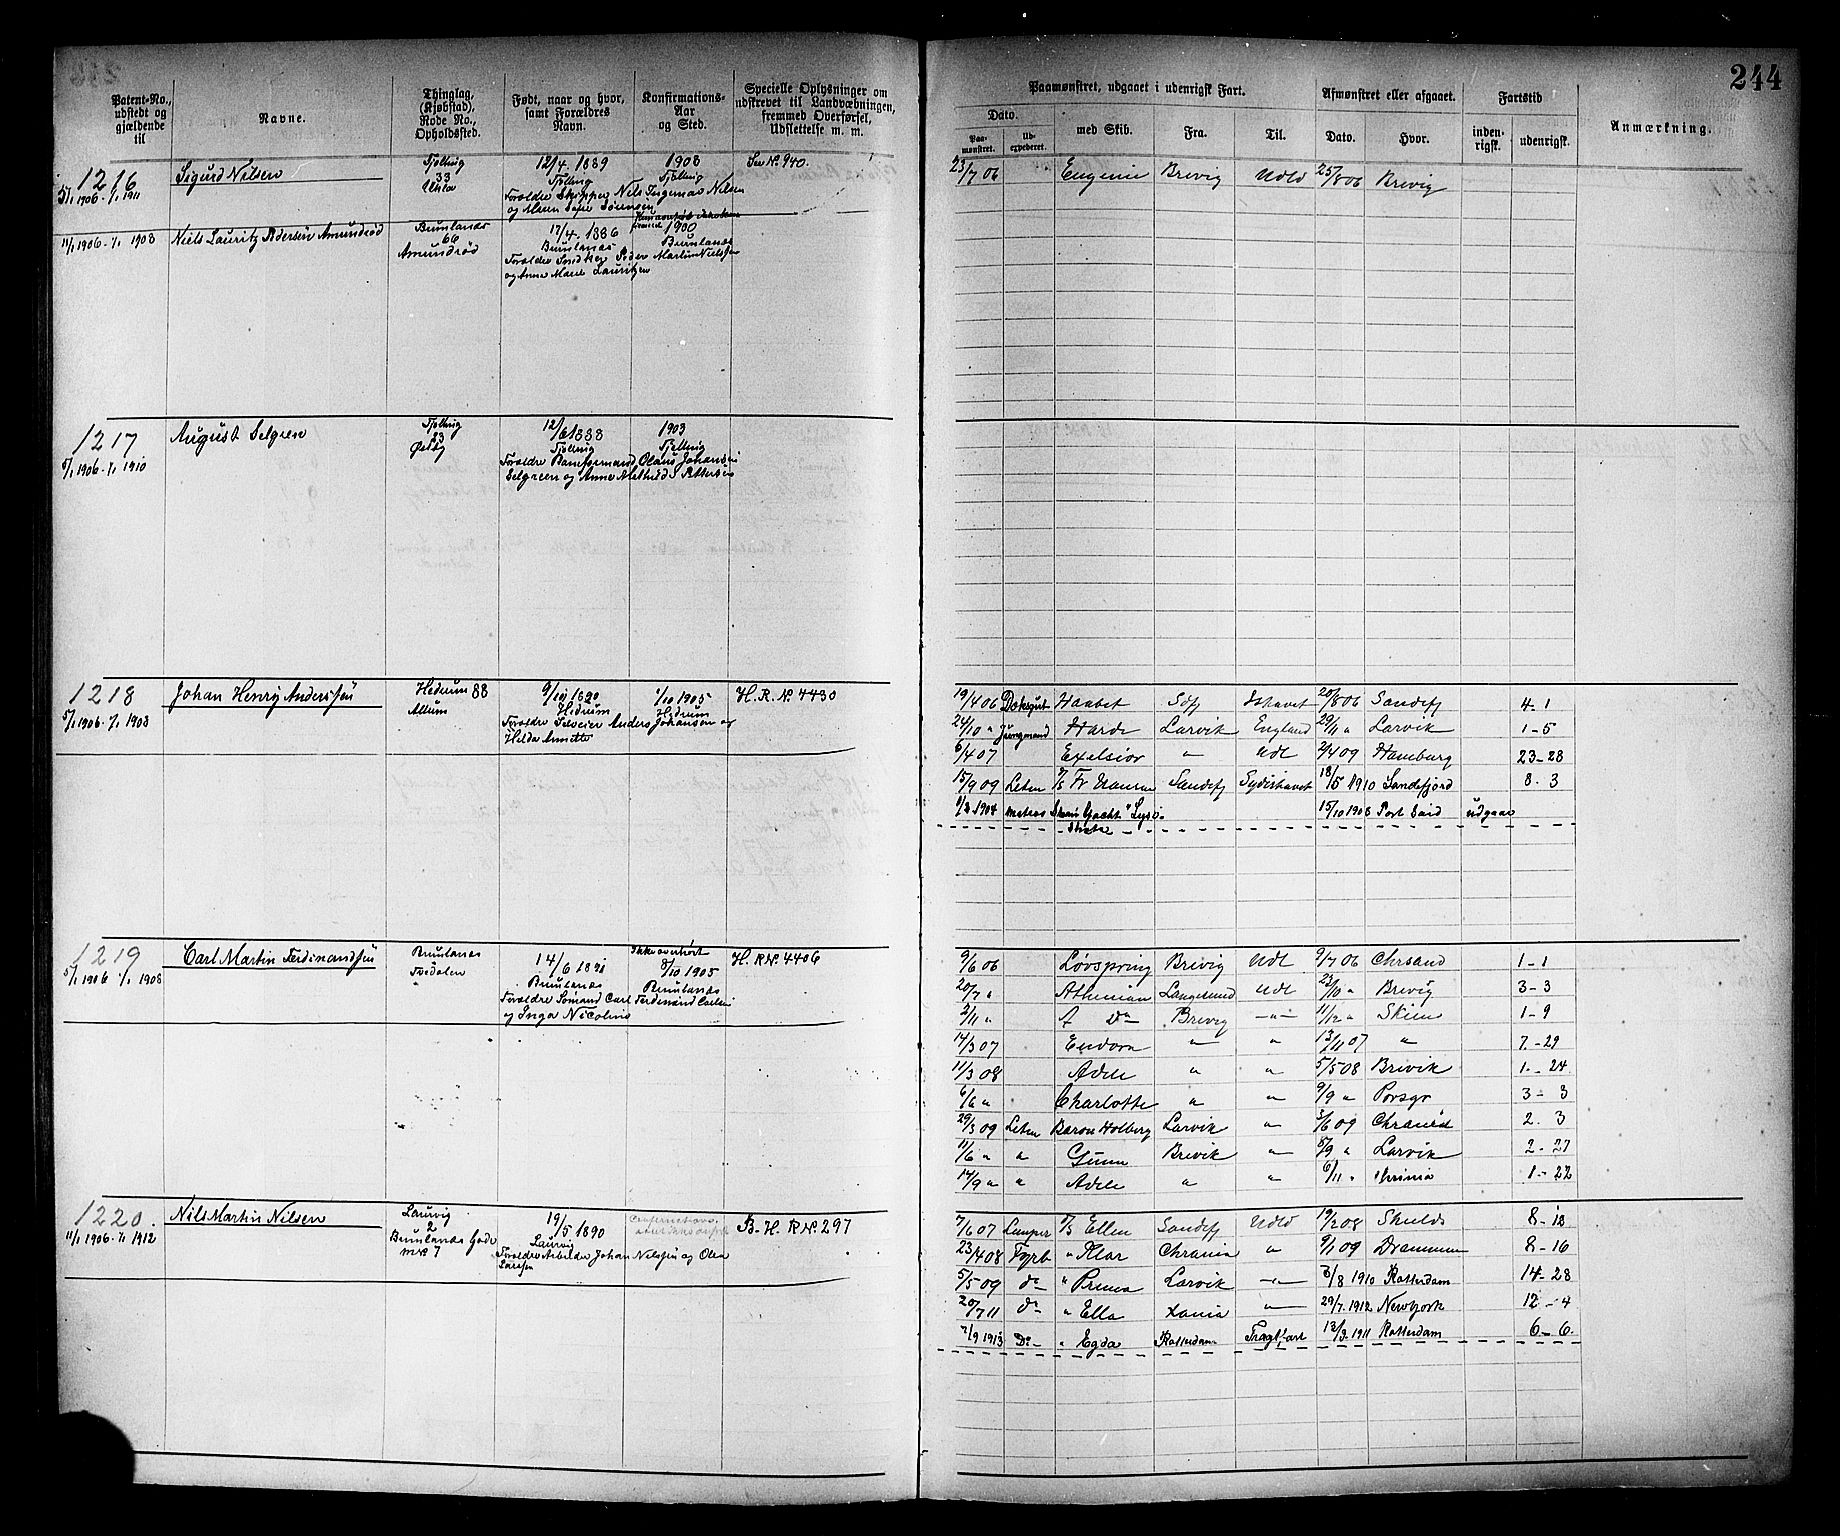 244
Patent-No., udstedt og gjældende til
Navne.
Thinglag, (Kjøbstad), Rode No., Opholdssted.
Født, naar og hvor, samt Forældres Navn.
Konfirmations-Aar og Sted.
Specielle Oplysninger om udskrevet til Landvæbningen, fremmed Overførsel, Udslettelse m. m.
Paamønstret, udgaaet i udenrigsk Fart.
Dato.
Paa-mønstret.
Ud-expederet.
med Skib.
Fra.
Til.
Afmønstret eller afgaaet.
Dato.
Hvor.
Fartstid
inden-rigsk.
udenrigsk.
Anmærkning.
1216 Sigurd Nilsen Tjølling 12/4 1889 1903 Sen No. 940.
33 Tjølling Tjølling
5/1 1906 - 1/1 1911 Forældre Skipper Nils Ingemar Nilsen
og Maren Sofie Sørensen
23/7 06 Eugenie Brevig Udld 25/8 06 Brevig
11/1 1906 - 1/1 1908 Niels Lauritz Pedersen Amundrød Brunlanæs 17/4 1886 1900
66 Brunlanæs Brunlanæs
Amundrød Forældre Peder Martin Nielsen
og Anne Marie Lauritzen
1217 August Selgren Tjølling 12/6 1888 1903
33 Tjølling Tjølling
5/1 1906 - 1/1 1910 Østby Forældre Olaus Johansen
Selgreen og Anne Mathilde Pettersen
1218 Johan Henry Anderssen Hedrum 88 9/10 1890 1/10 1905 H. R. No. 4430
Hedrum Hedrum
5/1 1906 - 1/1 1908 Forældre Anders Johansen og
Hilda Annette
19/4 06 Dæksgut Haabet Sdfj Ishavet 20/8 06 Sandefj 4-1
24/10 " Jungmand Harde Larvik England 29/11 " Larvik 1-5
6/4 07 Exelsior " Udl 2/4 09 Hamburg 23-28
15/9 09 Letm Sandefj Sydishavet 18/5 1910 Sandefjord 8-3
matros 15/10 1908 Port Said udgaar
1219 Carl Martin Ferdinandsen Brunlanæs 14/6 1891 Ikke overhørt H. R No. 4406
8/10 1905
5/1 1906 1/1 1908 Brunlanæs Brunlanæs
Forældre Sømand Carl Ferdinand Carlsen
og Inga Nicoline
9/6 06 Løvspring Brevig Udl 9/7 06 Chrsand 1-1
20/7 " Athenian Langesund Udl 23/10 " Brevig 3-3
2/11 " Do Brevig -"- 11/12 " Skien 1-9
14/3 07 Endora " " 13/11 07 " 7-29
11/3 08 Adele " " 5/5 08 Brevik 1-24
6/6 " Charlotte " " 9/9 " Porsgr 3-3
29/3 09 Letm Baron Holberg Larvik " 3/6 09 2.3
11/6 " " Brevik " 8/9 " Larvik 2-27
14/9 " " Adele " " 6/11 " 1-22
1220. Nils Martin Nilsen Laurvig 19/5 1890 B. H. R No. 297
2
11/1 1906 - 1/1 1912 Brunlanæs Gade Laurvig
Forældre Arbeider Johan Nilssen og Olea
Larsen
7/6 07 Lemper D/S Ellen Sandefj Udld 19/2 08 Shields 8-12
23/4 08 Fyrb " Klar Chrania " 9/1 09 Drammen 8-16
5/5 09 do " Prima Larvik -"- 3/8 1910 Rotterdam 14-28
20/7 11 do " Ella Xania " 29/7 1912 Newyork 12-4
7/9 1913 Do " Egda Rotterdam Fragtfart 12/3 1911 Rotterdam 6-6.